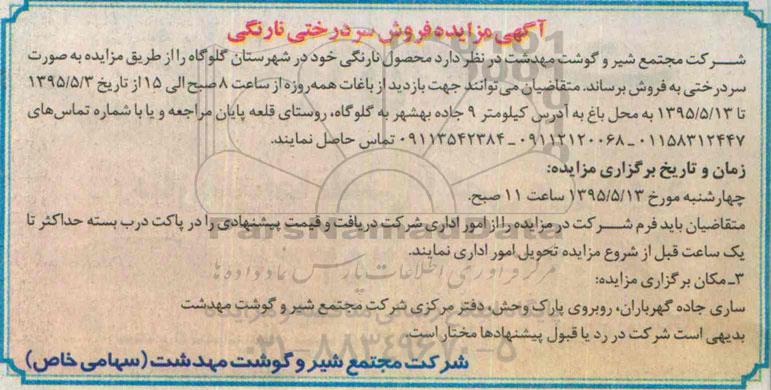 آگهی مزایده فروش سردرختی نارنگی
شرکت مجتمع شیر و گوشت مهدشت در نظر دارد محصول نارنگی خود در شهرستان گلوگاه را از طریق مزایده به صورت
سردرختی به فروش برساند. متقاضیان می‌توانند جهت بازدید از باغات همه‌روزه از ساعت ۸ صبح الی ۱۵ از تاریخ ۱۳۹۵/۵/۳
تا ۱۳۹۵/۵/۱۳ به محل باغ به آدرس کیلومتر ۹ جاده بهشهر به گلوگاه، روستای قلعه پایان مراجعه و یا با شماره تماس‌های
۰۱۱۵۸۳۱۲۴۴۷ ـ ۰۹۱۱۲۱۲۰۰۶۸ ـ ۰۹۱۱۳۵۴۲۳۸۴ تماس حاصل نمایند.
زمان و تاریخ برگزاری مزایده:
چهارشنبه مورخ ۱۳۹۵/۵/۱۳ ساعت ۱۱ صبح.
متقاضیان باید فرم شرکت در مزایده را از امور اداری شرکت دریافت و قیمت پیشنهادی را در پاکت درب بسته حداکثر تا
یک ساعت قبل از شروع مزایده تحویل امور اداری نمایند.
ParsNamadData
مرکز فرآوری اطلاعات پارس نماد داده ها
۳ـ مکان برگزاری مزایده:
ساری جاده گهرباران، روبروی پارک وحش، دفتر مرکزی شرکت مجتمع شیر و گوشت مهدشت
بدیهی است شرکت در رد یا قبول پیشنهادها مختار است.
۰۲۱-۸۸۳۴۹۶۷۰-۵
شرکت مجتمع شیر و گوشت مهدشت (سهامی خاص)